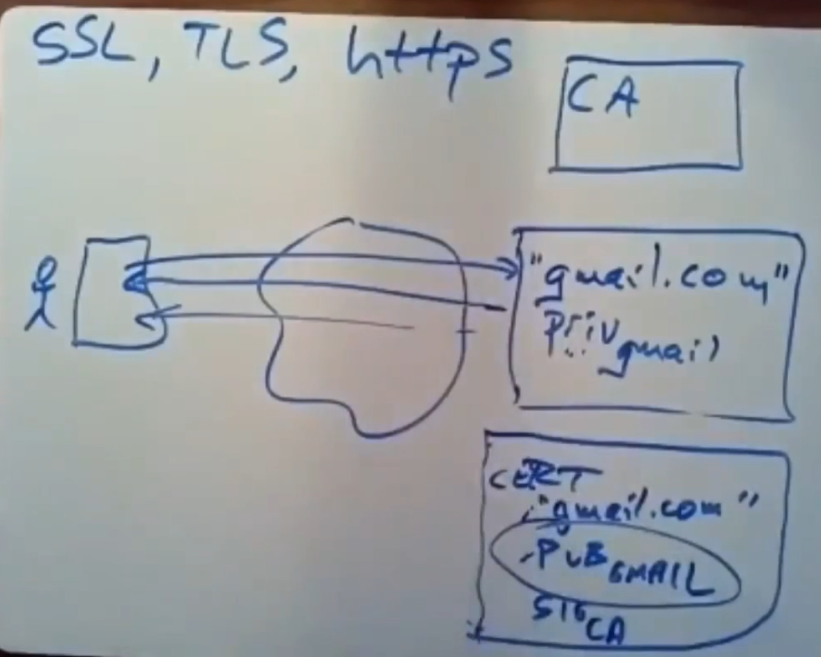 SSL, TLS, https
CA
"gmail.com"
Priv gmail
CERT
"gmail.com"
PUB GMAIL
SIG CA